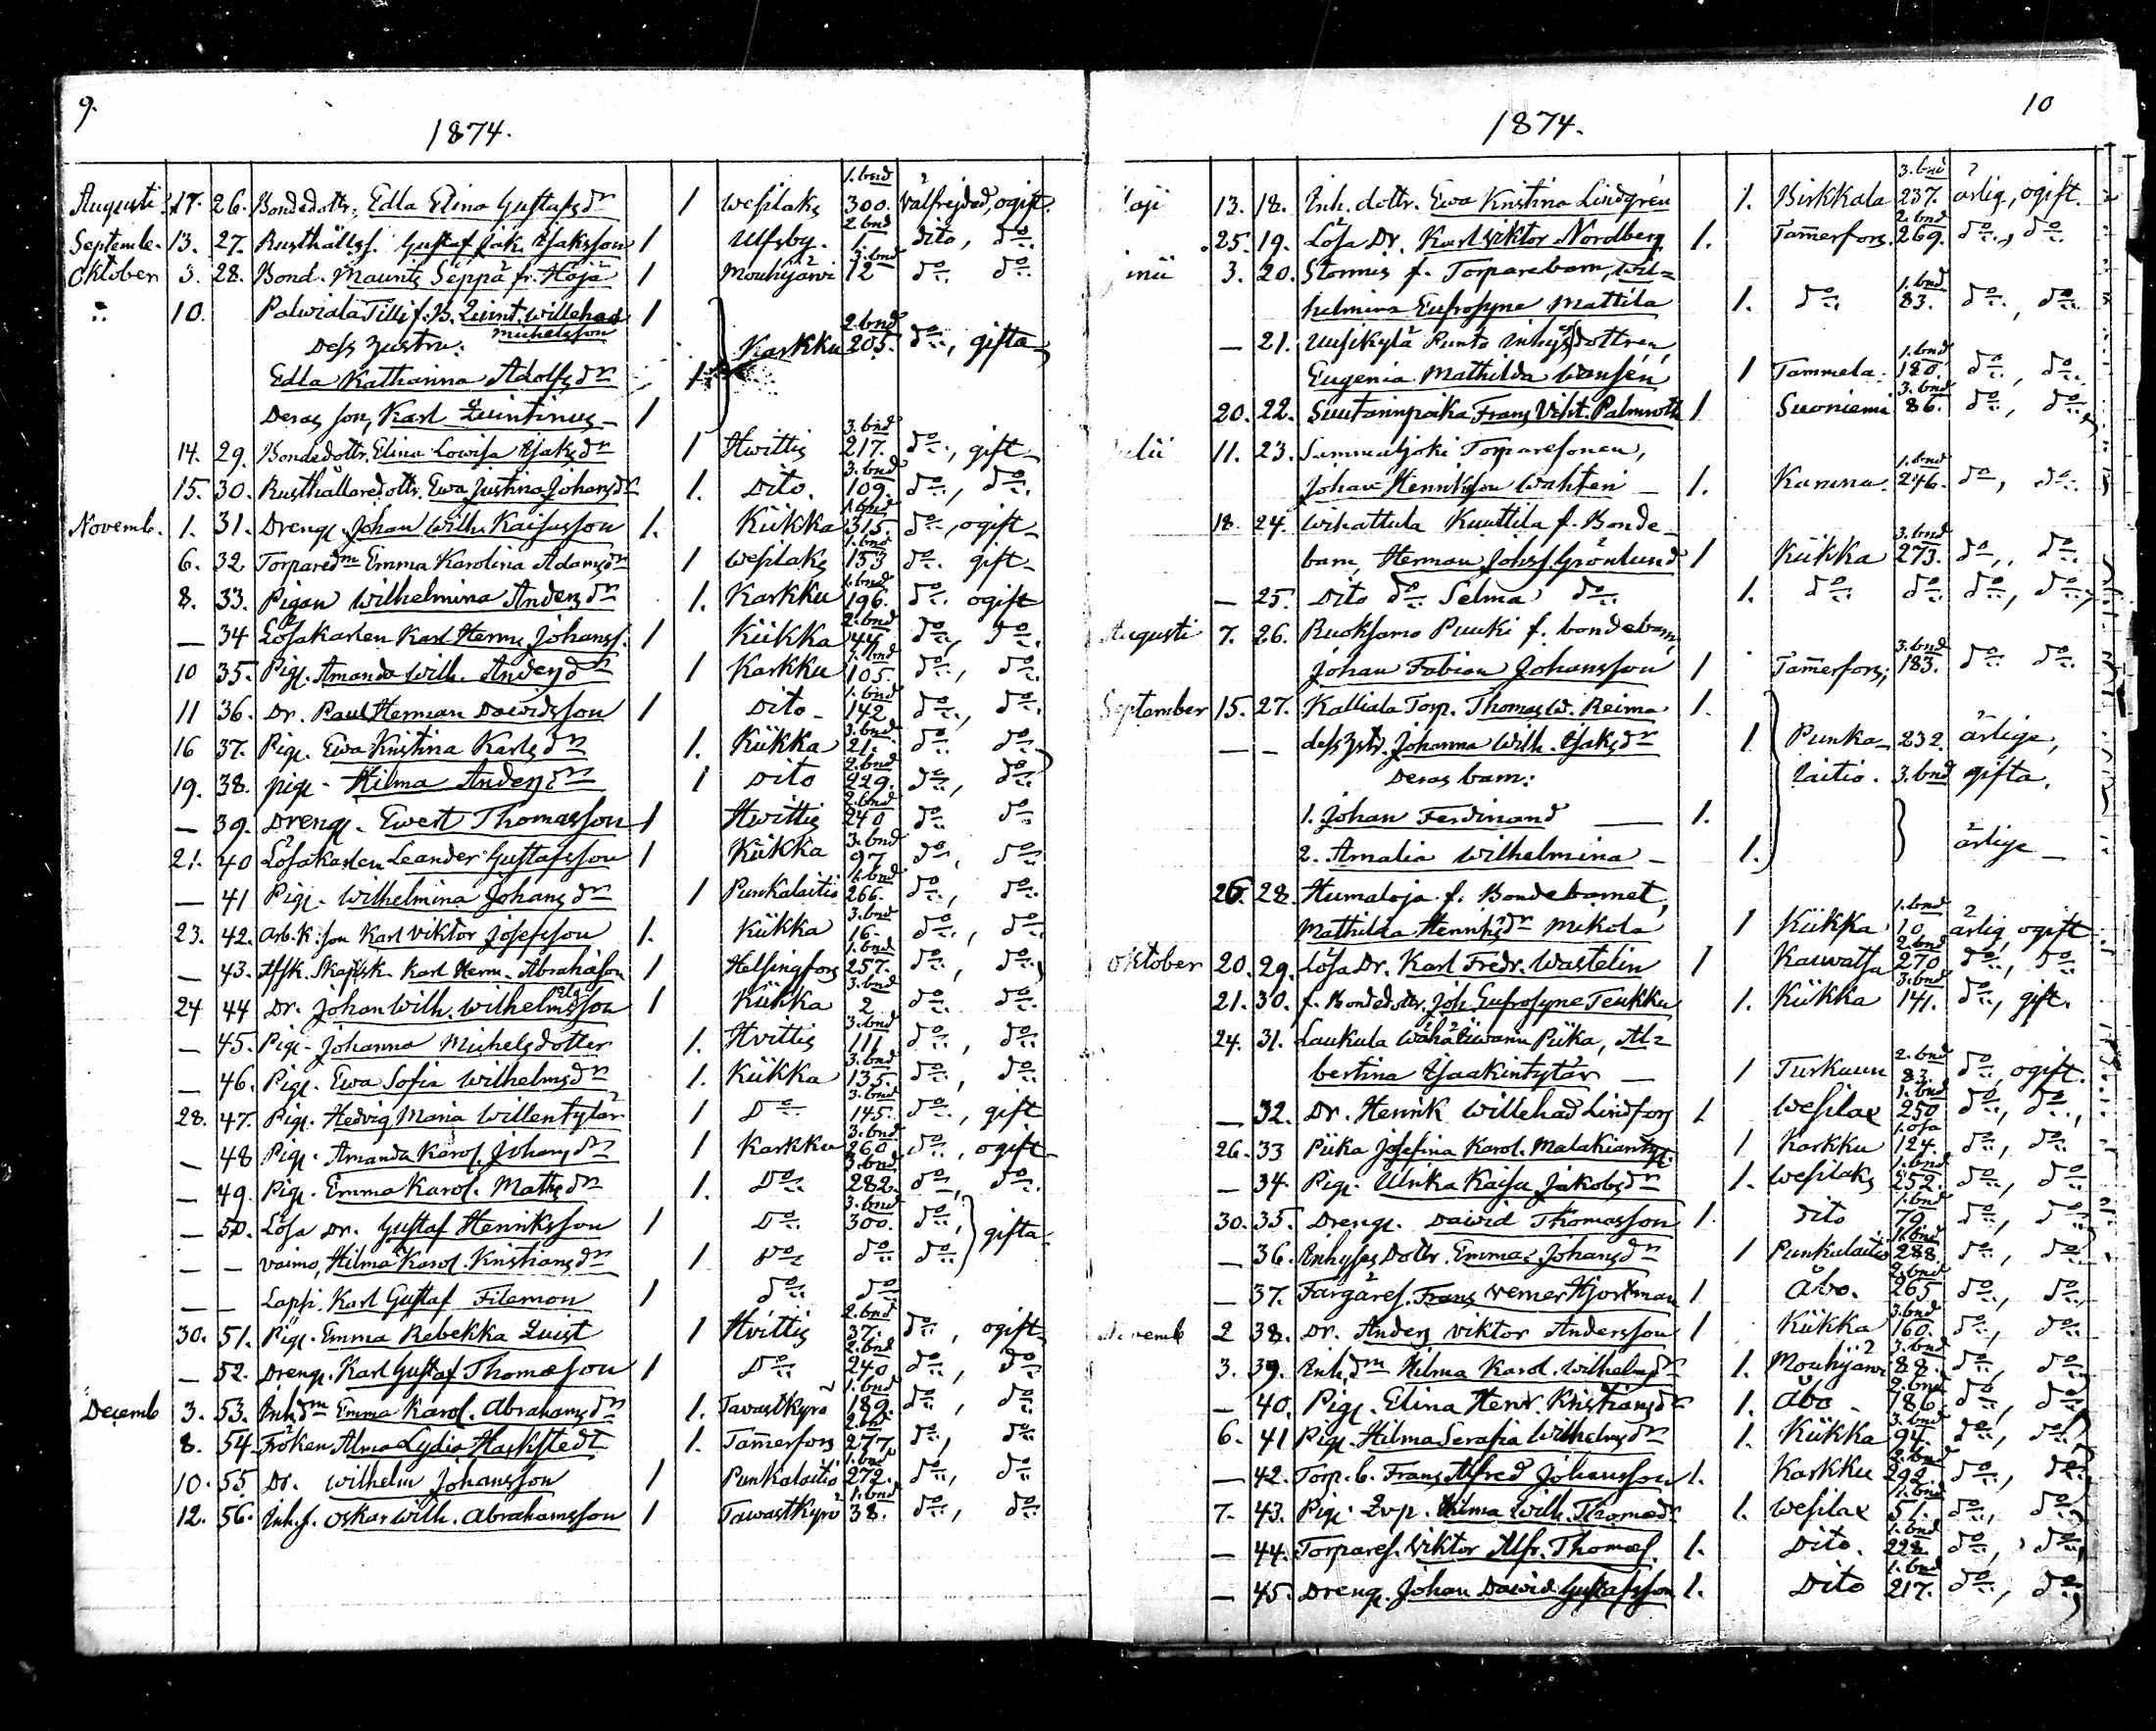 9.
1874.
1. bnd
Augusti 17. 26. Bondedottr. Edla Elina Gustafsdr 1 Wesilaks 300. välfrejdad, ogift.
2. bnd
Septembe. 13. 27. Rusthållss. Gustaf Jak. Isaksson 1 Ulfsby. 1. dito, do
3. bnd
Oktober 3. 28. Bond. Maunts Seppä fr. Höjä 1 Mouhijärvi 12 do do
10. Palviala Tilli f. B. Quint. Willehad 1
Michelsson
2. bnd
Dess hustru: Karkku 205. do, gifta
Edla Katharina Adolfsdr 1
Deras son, Karl Quintinus 1
3. bnd
14. 29. Bondedottr. Elina Lowisa Isaksdr 1 Hwittis 217. do, gift
3. bnd
15. 30. Rusthållaredottr. Ewa Justina Johansdr 1. Dito. 109. do, do
1. bnd
Novemb. 1. 31. Dreng. Johan Wilh. Kaisasson 1. Kiikka 315. do, ogift
1. bnd
6. 32 Torparedm Emma Karolina Adamsdr 1 Wesilaks 153 do gift
1. bnd
8. 33. Pigan Wilhelmina Andersdr 1. Karkku 196. do ogift
2. bnd
— 34 Lösakarlen Karl Herm. Johanss. 1 Kiikka 44. do, do
1. bnd
10 35. Pig. Amanda Wilh. Andersdr 1 Karkku 105. do, do
1. bnd
11 36. Dr. Paul Herman Dawidsson 1 Dito 142 do, do
3. bnd
16 37. Pig. Ewa Kristina Karlsdr 1. Kiikka 21. do do
2. bnd
19. 38. pig. Hilma Andersdr 1 Dito 229. do, do
2. bnd
— 39. Dreng. Ewert Thomasson 1 Hwittis 240 do do
3. bnd
21. 40 Lösakarlen Leander Gustafsson 1 Kiikka 97 do, do
1. bnd
— 41 Pig. Wilhelmina Johansdr 1 Punkalaitio 266. do, do
3. bnd
23. 42. Arb. k. son Karl Viktor Josefsson 1. Kiikka 16. do, do
1. bnd
— 43. Karl Herm. Abrahamson 1 Helsingfors 257. do, do
3. bnd
24 44 Dr. Johan Wilh. Wilhelmsson 1 Kiikka 2 do do
3. bnd
— 45. Pig. Johanna Michelsdotter 1. Hvittis 111 do, do
3. bnd
— 46. Pig. Ewa Sofia Wilhelmsdr 1. Kiikka 135. do, do
3. bnd
28. 47. Pig. Hedvig Maria Willentytär 1 Do 145. do, gift
3. bnd
— 48 Pig. Amanda Karol. Johansdr 1 Karkku 260 do, ogift
3. bnd
— 49. Pig. Emma Karol. Mathsdr 1. Do 282. do, do
3. bnd
— 50. Lösa Dr. Gustaf Henriksson 1 Do 300. do, gifta
— — vaimo, Hilma Karol. Kristiansdr 1 Do do do
— — Lapsi, Karl Gustaf Filemon 1 do do
2. bnd
30. 51. Pig. Emma Rebekka Quist 1 Hvittis 37. do, ogift
2. bnd
— 52. Dreng. Karl Gustaf Thomasson 1 Do 240 do, do
1. bnd
Decemb 3. 53. Inh. dm Emma Karol. Abrahamsdr 1. Tavastkyrö 189. do, do
2. bnd
8. 54. Fröken Alma Lydia Hackstedt 1. Tam̄erfors 277. do, do
1. bnd
10. 55. Dr. Wilhelm Johansson 1 Punkalaitio 272. do, do
1. bnd
12. 56. Inh. s. Oskar Wilh. Abrahamsson 1 Tawastkyrö 38. do, do
10
1874.
3. bnd
Maji 13. 18. Inh. dottr. Ewa Kristina Lindgrén 1. Birkkala 237. ärlig, ogift.
2. bnd
25. 19. Lösa Dr. Karl Viktor Nordberg 1. Tam̄erfors. 269. do, do
3. 20. Stormis f. Torparebarn, Wil=
1. bnd
helmina Eufrosyne Mattila 1. do 83. do, do
— 21. Uusikylä Punto inhysdottren,
1. bnd
Eugenia Mathilda Wansén 1 Tammela. 180. do, do
3. bnd
20. 22. Suutarinpoika Frans Vikt. Palmroth 1 Suoniemi 86. do, do
11. 23. Sammaljoki Torparesonen,
1. bnd
Johan Henriksson Wahten 1. Kumma. 246. do, do
18. 24. Wihattula Knuttila f. Bonde
3. bnd
barn, Herman Johss. Grönlund 1 Kiikka 273. do, do
— 25. Dito do Selma do 1. do do do, do
Augusti 7. 26. Ruoksamo Puuki f. bondebarn,
3. bnd
Johan Fabian Johansson 1 Tam̄erfors; 183. do do
September 15. 27. Kalliala Torp. Thomas W. Reima 1.
— — dess hstr. Johanna Wilh. Isaksdr 1 Punka- 232. ärlige,
Deras barn: laitio. 3. bnd gifta.
1. Johan Ferdinand 1.
2. Amalia Wilhelmina 1. ärlige
26. 28. Humaloja f. Bondebarnet,
1. bnd
Mathilda Henriksdr Mikola 1 Kiikka 10. ärlig, ogift
2. bnd
Oktober 20. 29. Lösa Dr. Karl Fredr. Wastelin 1 Kauvatsa 270 do, do
3. bnd
21. 30. f. Bondedottr. Joh. Eufrosyne Teukku 1. Kiikka 141. do, gift.
24. 31. Laukula Wähä Piika, Al=
2. bnd
bertina Isaakintytär 1 Turkuun 83. do, ogift.
1. bnd
— 32. Dr. Henrik Willehad Lindfors 1 Wesilax 250 do, do,
1. osa
26. 33 Piika Josefina Karol. Malakiantyt. 1 Karkku 124. do, do
1. bnd
— 34. Pig. Ulrika Kaisa Jakobsdr 1. Wesilaks 252. do, do
1. bnd
30. 35. Dreng. Dawid Thomasson 1. dito 79. do, do
1. bnd
— 36. Inhyses Dottr. Emma Johansdr 1 Punkalaitio 288. do, do
2. bnd
— 37. Färgares. Frans Verner Hjortman 1 Åbo. 265 do, do
3. bnd
Novemb 2 38. Dr. Anders Viktor Andersson 1 Kiikka 160. do, do
3. bnd
3. 39. Inh. dm Hilma Karol. Wilhelmsdr 1. Mouhijärvi 88. do, do
2. bnd
— 40. Pig. Elina Henr. Kristiansdr 1. Åbo 186 do, do
3. bnd
6. 41 Pig. Hilma Serafia Wilhelmsdr 1. Kiikka 94. do, do
2. bnd
— 42. Torp. b. Frans Alfred Johansson 1. Karkku 292. do, do
1. bnd
7. 43. Pig. Hilma Wilh. Thomasdr 1. Wesilax 51. do, do
1. bnd
— 44. Torpares. Viktor Alfr. Thomas. 1. Dito. 228. do, do
1. bnd
— 45. Dreng. Johan Dawid Gustafsson 1. Dito 217. do, do